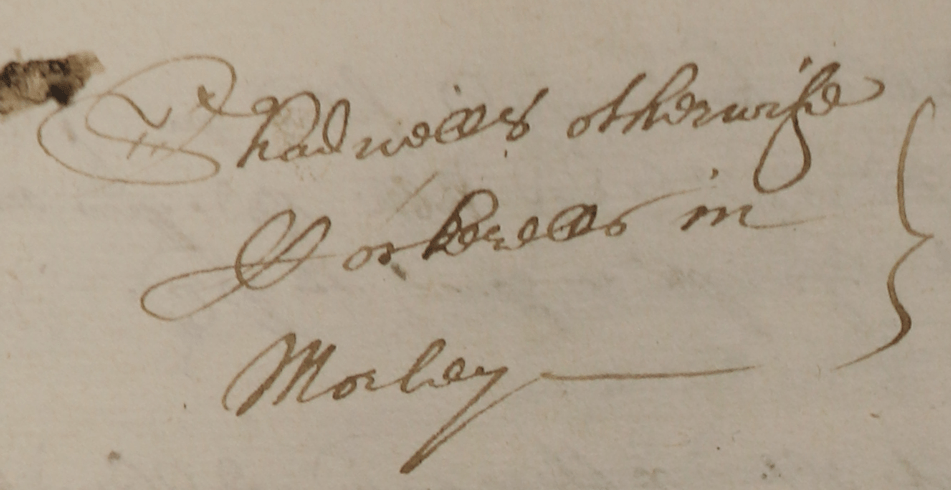 Chadwells otherwise
ffockerells in
Morley